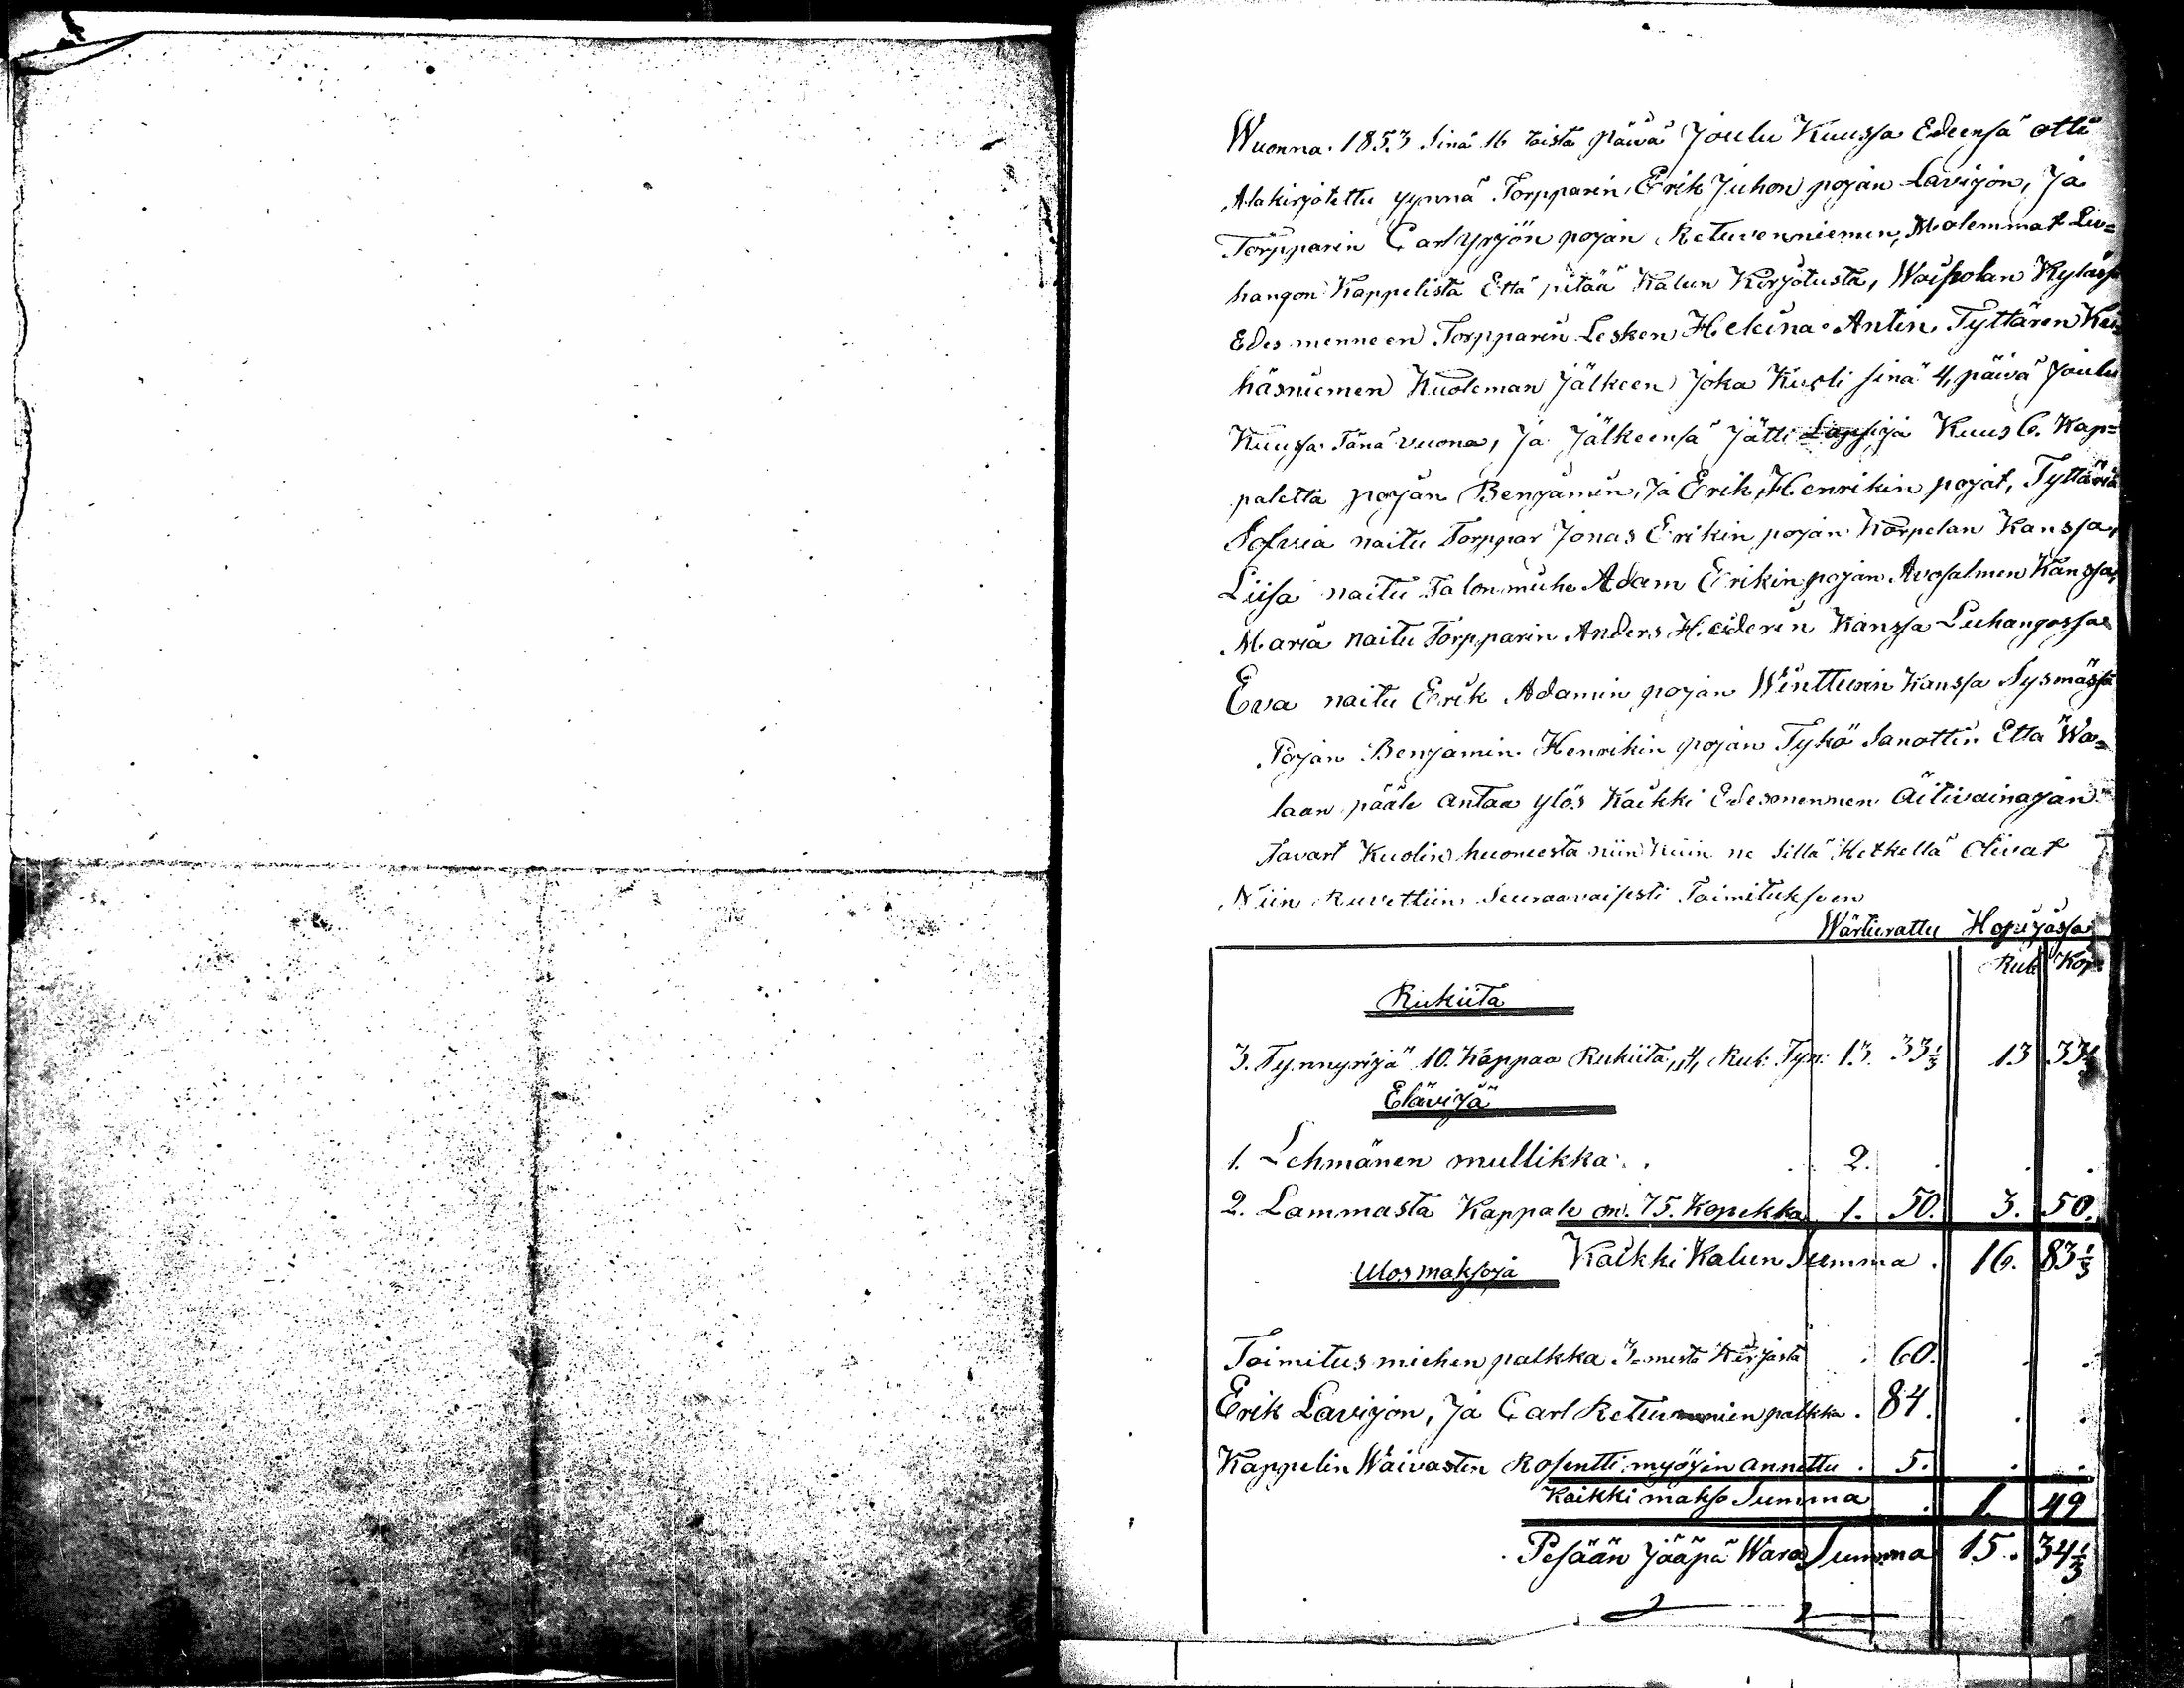 Wuonna 1853 Sinä 16 toista päivä Joulu Kuussa Edeensä otti
Alakirjotettu ynnä Torpparin Erik Juhon pojan Lavijon, Ja
Torpparin Carl Yrjön pojan Retuvenniemen, Molemmat Liv=
hangon Kappelista Että pitää Kalun Kirjotusta, Waipolan Kylässä
Edes menneen Torpparin Lesken Heleina Antin Tyttären Kei=
häsniemen Kuoleman Jälkeen Joka Kuoli sinä 4, päivä Joulu
Kuussa Tänä vuona, Ja Jälkeensä Jätti Lapsija Kuus 6. Kap=
paletta pojan Benjamin, Ja Erik, Henrikin pojat, Tyttäriä
Sofvia naitu Torppar Jonas Erikin pojan Korpelan Kanssa,
Liisa naitu Talon miihe Adam Erikin pojan Avosalmen Kanssa,
Maria naitu Torpparin Anders Heiderin Kanssa Luhangossa
Eva naitu Erik Adamin pojan Wintturin Kanssa Sysmässä
Pojan Benjamin Henrikin pojan Tykö Sanottin Että Wa=
laan pääle antaa ylös Kaikki Edesmennen Äitivainajan
Tavart Kuolin huoneesta niin kuin ne Sillä Hetkellä Olivat
Niin Ruvettiin Seuraavaisesti Toimitukseen
Wärtierattu Hopiijassa
Rub Kop
Rukiita
3. Tynnyrijä 10. Kappaa Rukiita, 4, Rub. Tyn: 13. 33 1/3 13 33 1/3
Elävijä
1. Lehmänen mullikka . . 2. . . .
2. Lammasta Kappale on. 75. Kopekka 1. 50. 3. 50.
Kaikki Kalun Summa . 16. 83 1/3
Ulosmaksoja
Toimitus miehen palkka 3=mesta Kirjasta . 60. . .
Erik Lavijon, Ja Carl Retuvennien palkka . 84. . .
Kappelin Waivasten Rosentti myöjin annettu . 5. . .
Kaikki makso Summa . 1. 49
Pesään Jääpä Wara Summa 15. 34 1/3